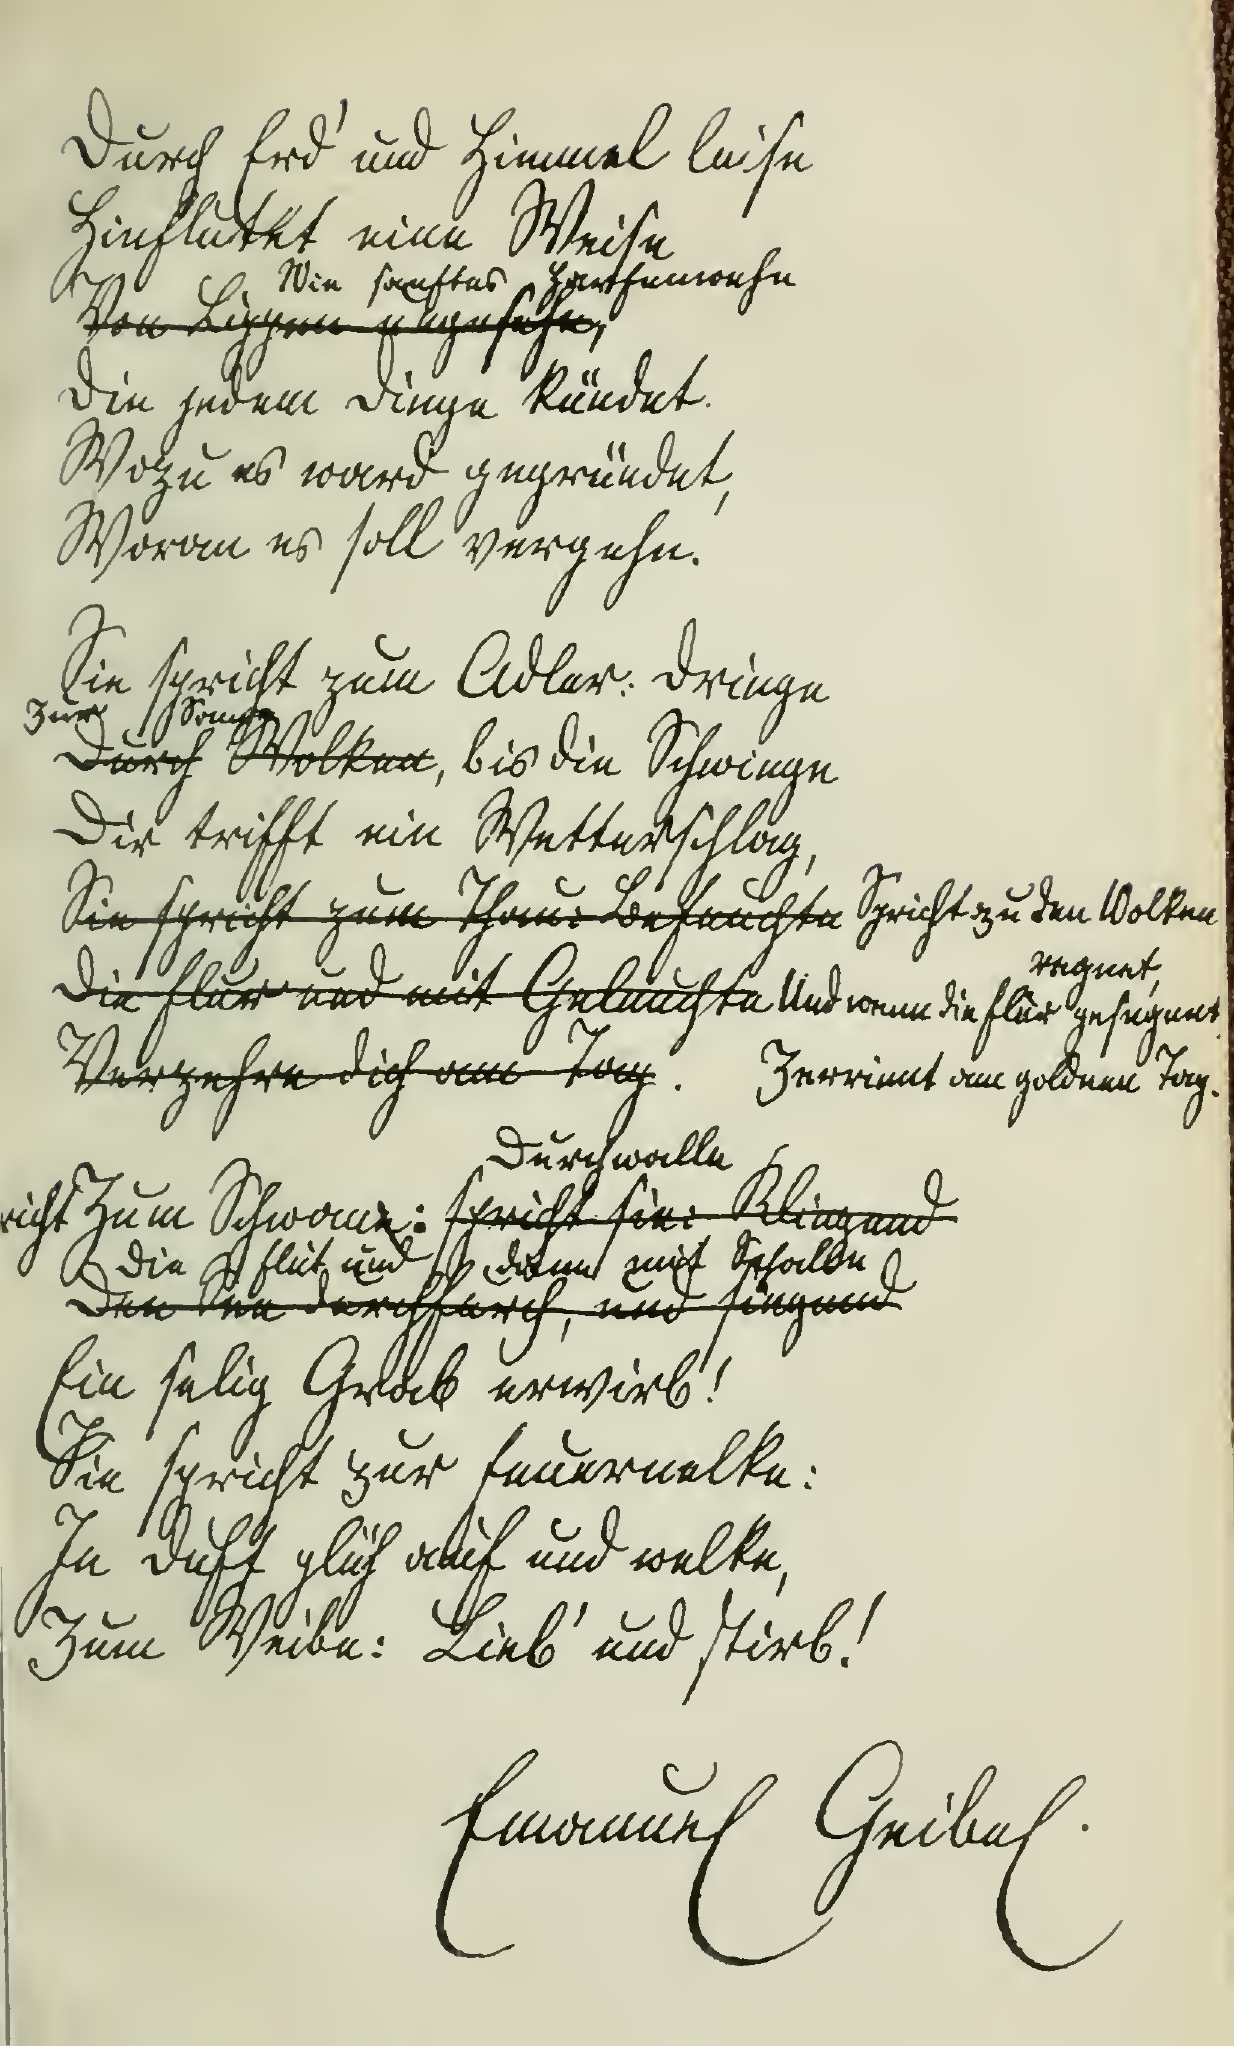 Durch Erd' und Himmel leise
Hinflutet eine Weise
Wie sanftes Harfenwehn
Von Lippen ungesehn,
Die jedem Dinge kündet.
Wozu es ward gegründet,
Woran es soll vergehn.
Sie spricht zum Adler: Dringe
Zur Sonne
Durch Wolken, bis die Schwinge
Dir trifft ein Wetterschlag,
Sie spricht zum Thau: Befeuchte Spricht zu den Wolken
regnet,
Die Flur und mit Geleuchte Und wenn die Flur gesegnet
Verzehre dich am Tag. Zerrinnt am goldnen Tag.
Durchwalle
richt Zum Schwane: spricht sie: Klingend
Die Flut und dann mit Schalle
Den See durchfurch, und singend
Ein selig Grab erwirb!
Sie spricht zur Feuernelke:
In Duft glüh auf und welke,
Zum Weibe: Lieb' und stirb!
Emanuel Geibel.